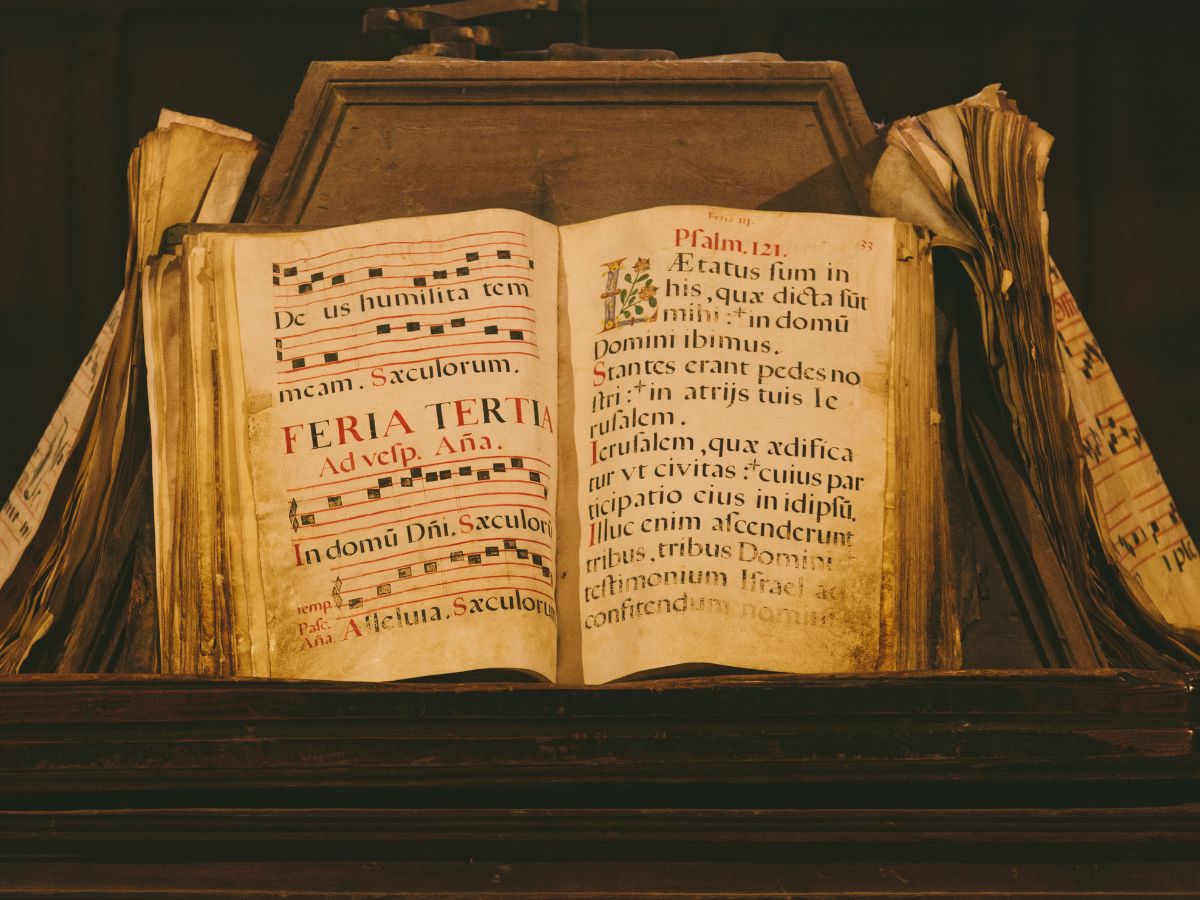 De us humilita tem
meam. Sæculorum.
FERIA TERTIA
Ad veſp. Aña.
In domũ Dñi. Sæculorũ
temp.
Paſc.
Aña. Alleluia. Sæculorum
Feria iij.
33
Pſalm. 121.
LÆtatus ſum in
his, quæ dicta ſũt
mihi :+ in domũ
Domini ibimus.
Stantes erant pedes no
ſtri :+ in atrijs tuis Ie
ruſalem.
Ieruſalem, quæ ædifica
tur vt civitas :+ cuius par
ticipatio eius in idipſũ.
Illuc enim aſcenderunt
tribus, tribus Domini :
teſtimonium Iſrael ad
confitendum nomini